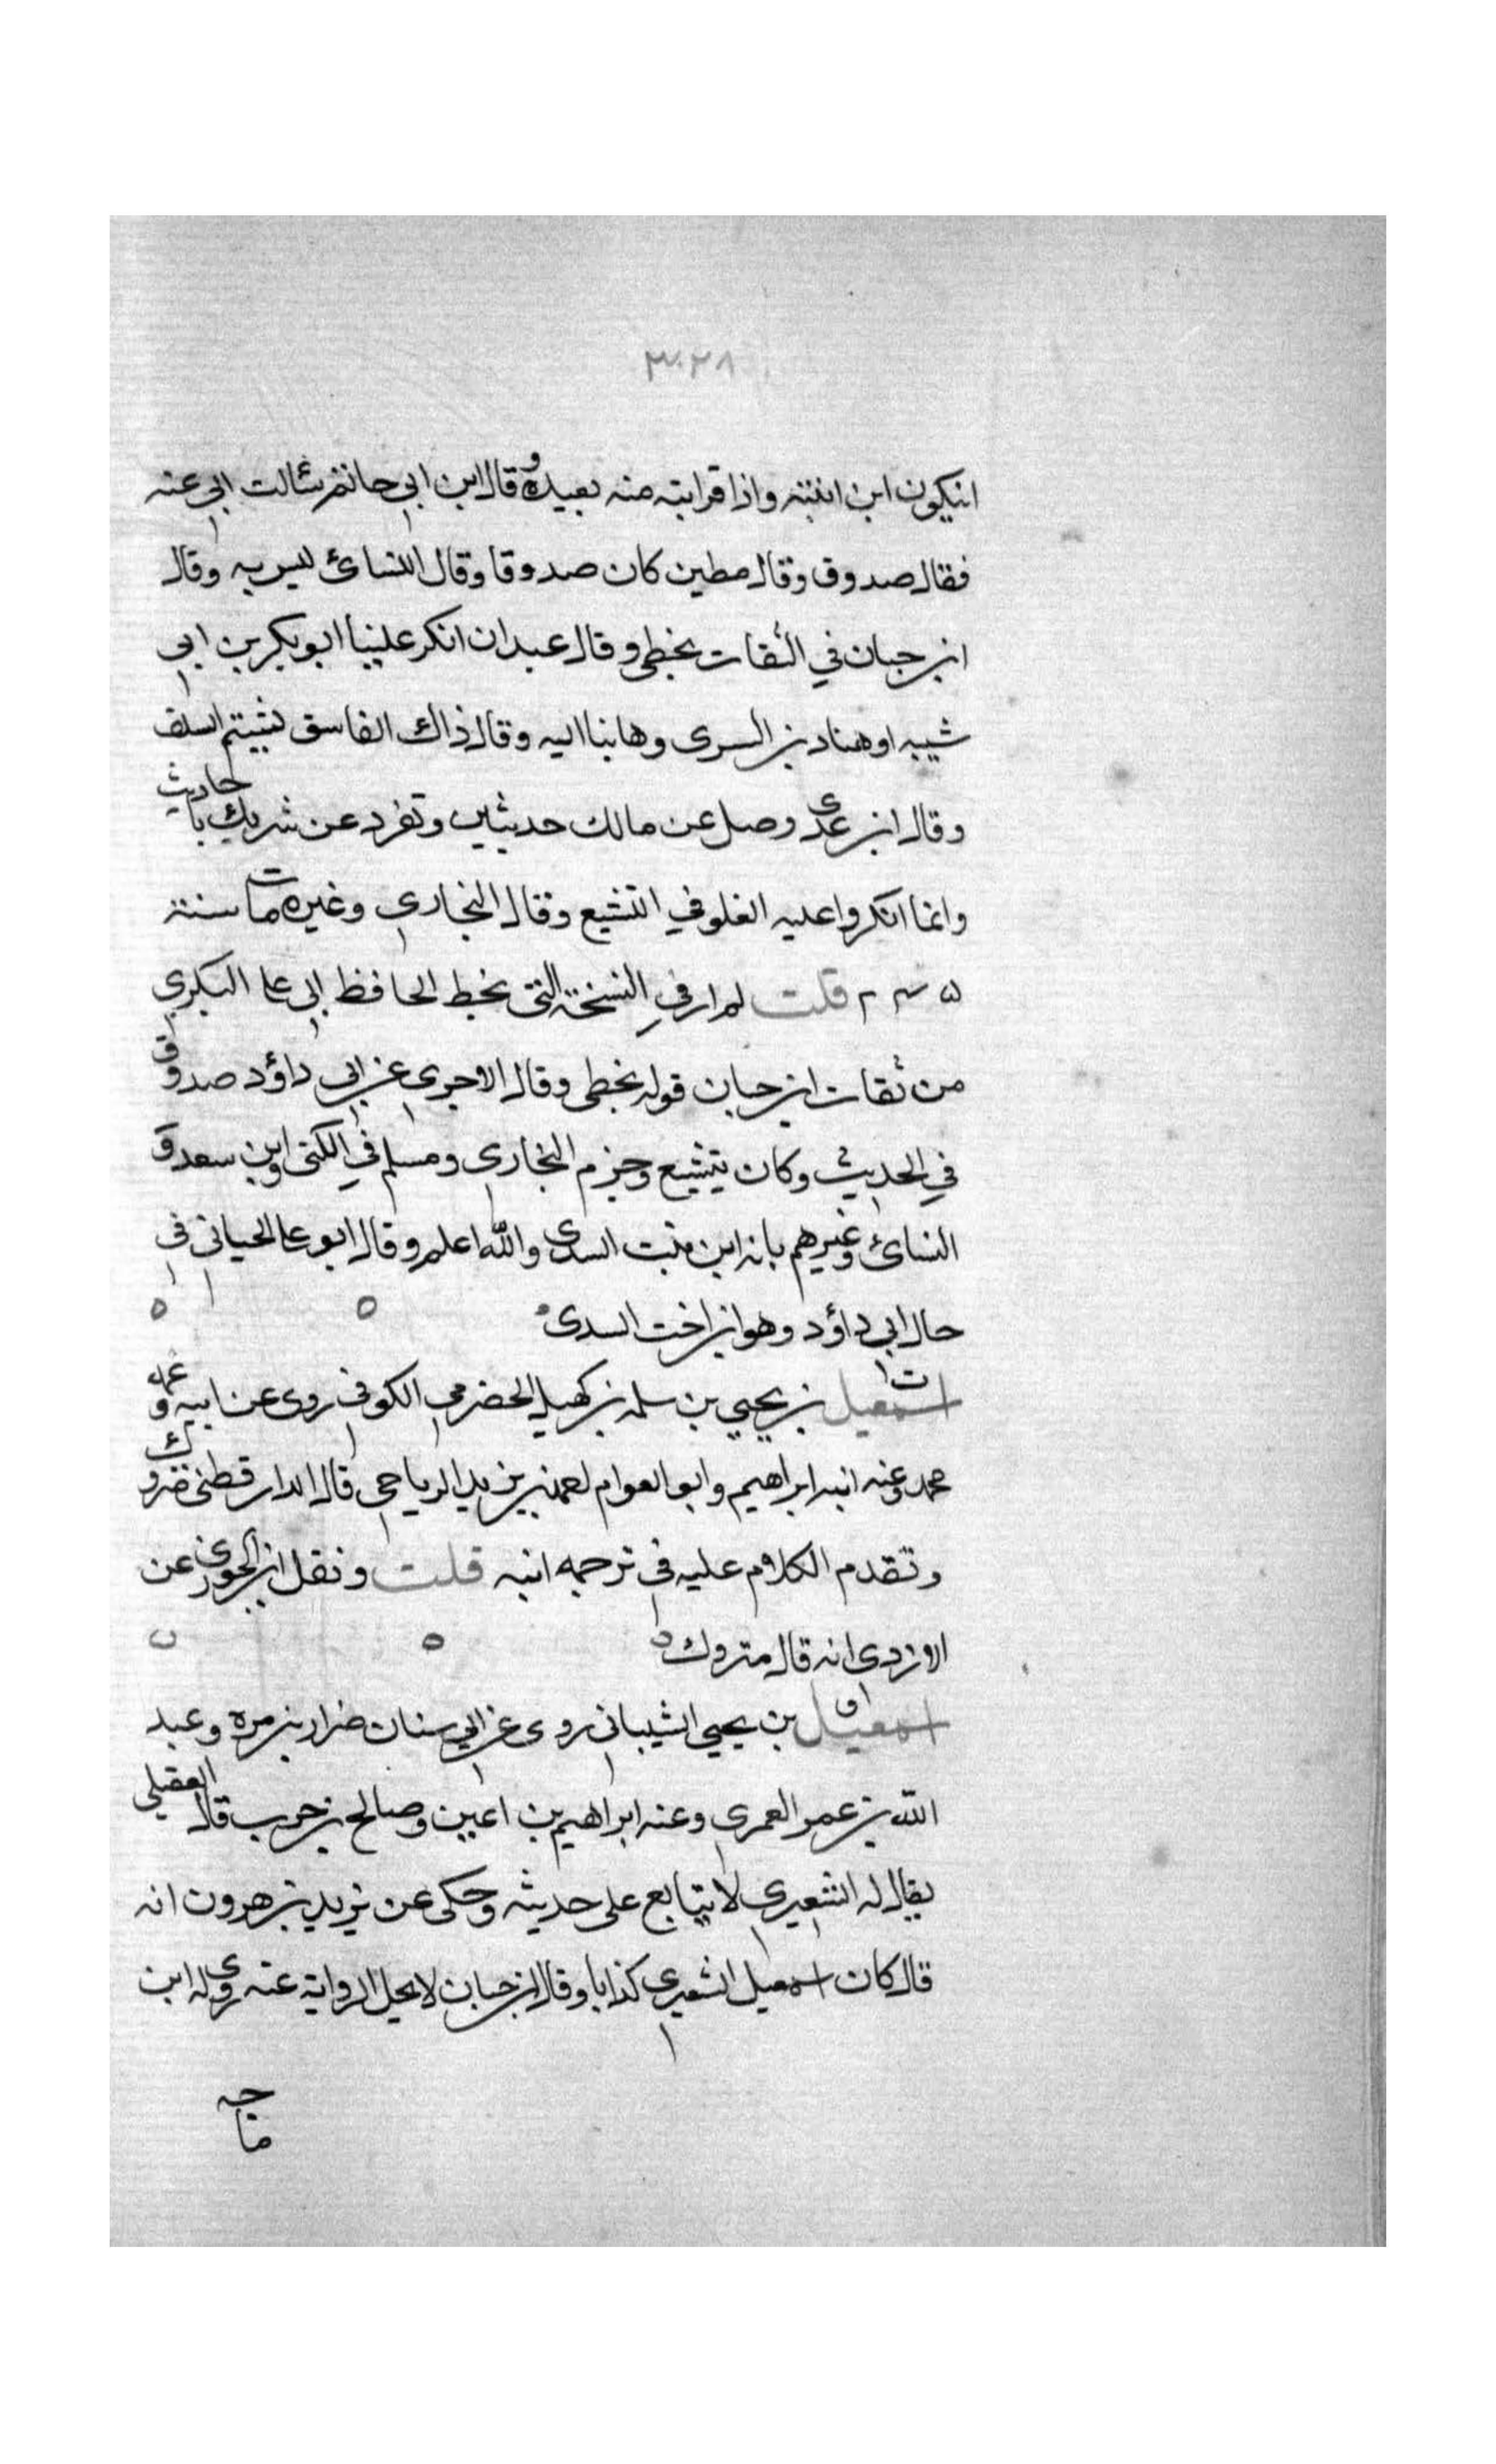 ٣٠٢٨
انيكون ابن ابنته واذا قرابته منه بعيدة وقال ابن ابي حاتم سالت ابي عنه
فقال صدوق وقال مطين كان صدوقا وقال النسائ ليس به وقال
ابن حبان في الثقات يخطى وقال عبدان انكر علينا ابو بكر بن ابي
شيبه او هناد بن السرى وهابنا اليه وقال ذاك الفاسق يشتم السلف
وقال ابن عدى وصل عن مالك حديثين وتفرد عن شريك باحاديث
وانما انكروا عليه الغلو في التشيع وقال البخارى وغيره مات سنة
٢٤٥ قلت لم ار في النسخة التى بخط الحافظ ابى على البكرى
من ثقات ابن حبان قوله يخطى وقال الاجرى عن ابى داؤد صدوق
في الحديث وكان يتشيع وجزم البخارى ومسلم في الكنى وابن سعد و
النسائ وغيرهم بانه ابن بنت السدى والله اعلم وقال ابو على الجيانى فى
حال ابى داؤد وهو ابن اخت السدى
ت اسمعيل بن يحيي بن سلمه بن كهيل الحضرمي الكوفى روى عن ابيه وعمه
محمد وعنه ابنه ابراهيم وابو العوام احمد بن يزيد الرياحى قال الدارقطنى متروك
وتقدم الكلام عليه فى ترجمه ابنه قلت ونقل ابن الجوزى عن
الازدى انه قال متروك
ق اسمعيل بن يحيي الشيبانى روى عن ابي سنان ضرار بن مره وعبد
الله بن عمر العمرى وعنه ابراهيم بن اعين وصالح بن حرب قال العقيلي
يقال له الشعيرى لا يتابع على حديثه وحكى عن يزيد بن هرون انه
قال كان اسمعيل الشعيرى كذابا وقال ابن حبان لا يحل الرواية عنه روى له ابن
ماجه